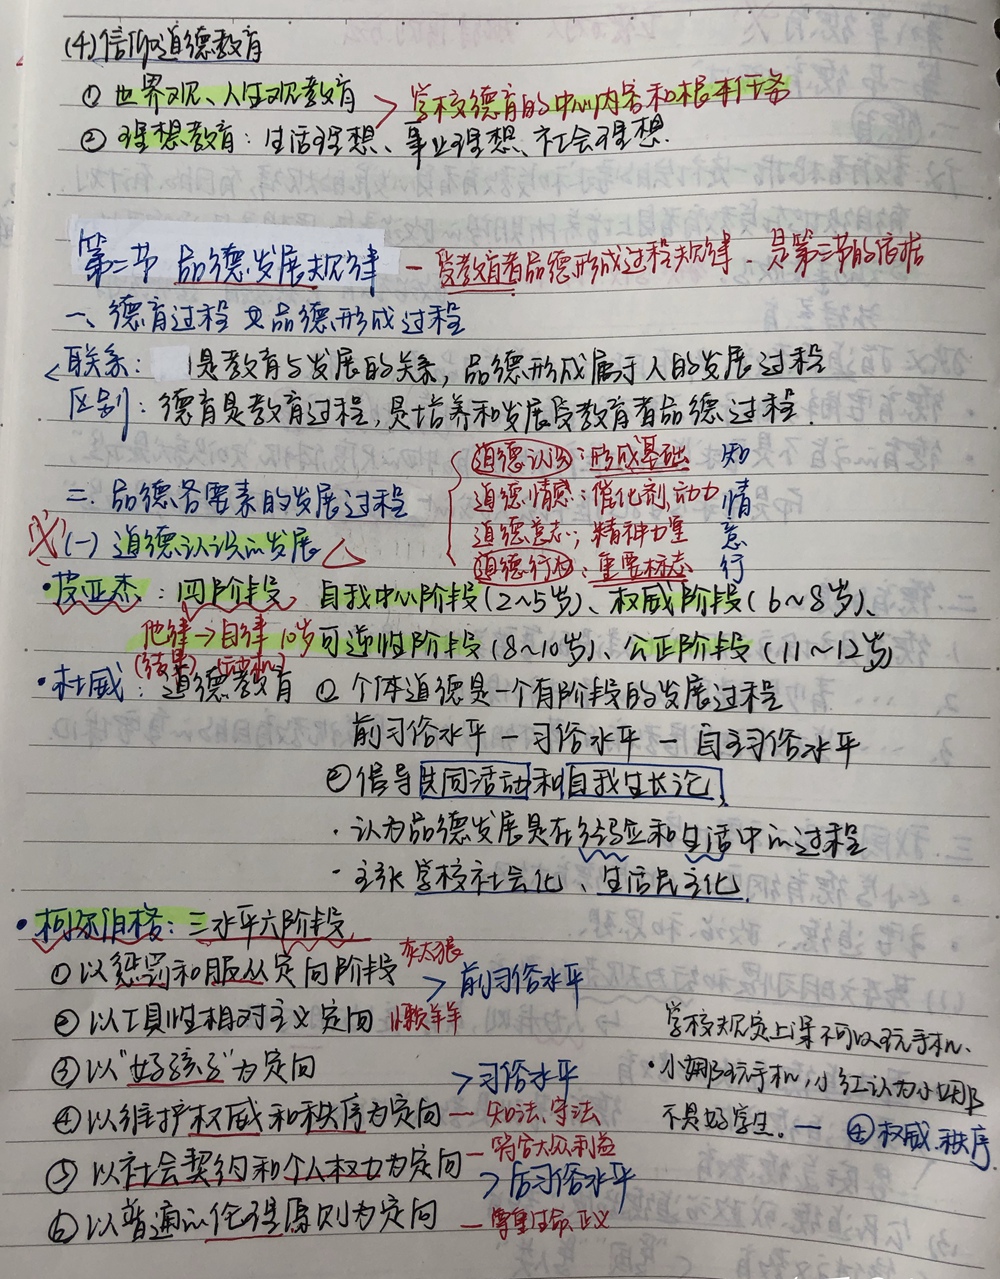 (4)信仰道德教育
① 世界观、人生观教育 > 学校德育的中心内容和根本任务
② 理想教育：生活理想、事业理想、社会理想.
第二节 品德发展规律 — 受教育者品德形成过程规律 . 是第三节的依据
一、德育过程与品德形成过程
联系： 是教育与发展的关系, 品德形成属于人的发展过程
区别：德育是教育过程, 是培养和发展受教育者品德过程.
道德认识：形成基础 知
二. 品德各要素的发展过程 道德情感：催化剂,动力 情
道德意志；精神力量 意
(一) 道德认识的发展 道德行为：重要标志 行
·皮亚杰：四阶段, 自我中心阶段(2~5岁)、权威阶段(6~8岁)、
他律→自律 10岁 可逆性阶段(8~10岁)、公正阶段(11~12岁)
(结果) (动机)
·杜威：道德教育 ① 个体道德是一个有阶段的发展过程
前习俗水平 — 习俗水平 — 自主习俗水平
② 倡导共同活动和自我生长论,
· 认为品德发展是在经验和生活中的过程
- 主张 学校社会化、生活民主化,
·柯尔伯格：三水平六阶段,
① 以惩罚和服从定向阶段 灰太狼 > 前习俗水平
② 以工具性相对主义定向 懒羊羊
学校规定上课不可以玩手机.
③ 以“好孩子”为定向 > 习俗水平
·小娜玩手机, 小红认为小娜
④ 以维护权威和秩序为定向 — 知法、守法
不是好学生. — ④权威.秩序
⑤ 以社会契约和个人权力为定向 — 符合大众利益 > 后习俗水平
⑥ 以普遍的伦理原则为定向 — 尊重生命.正义